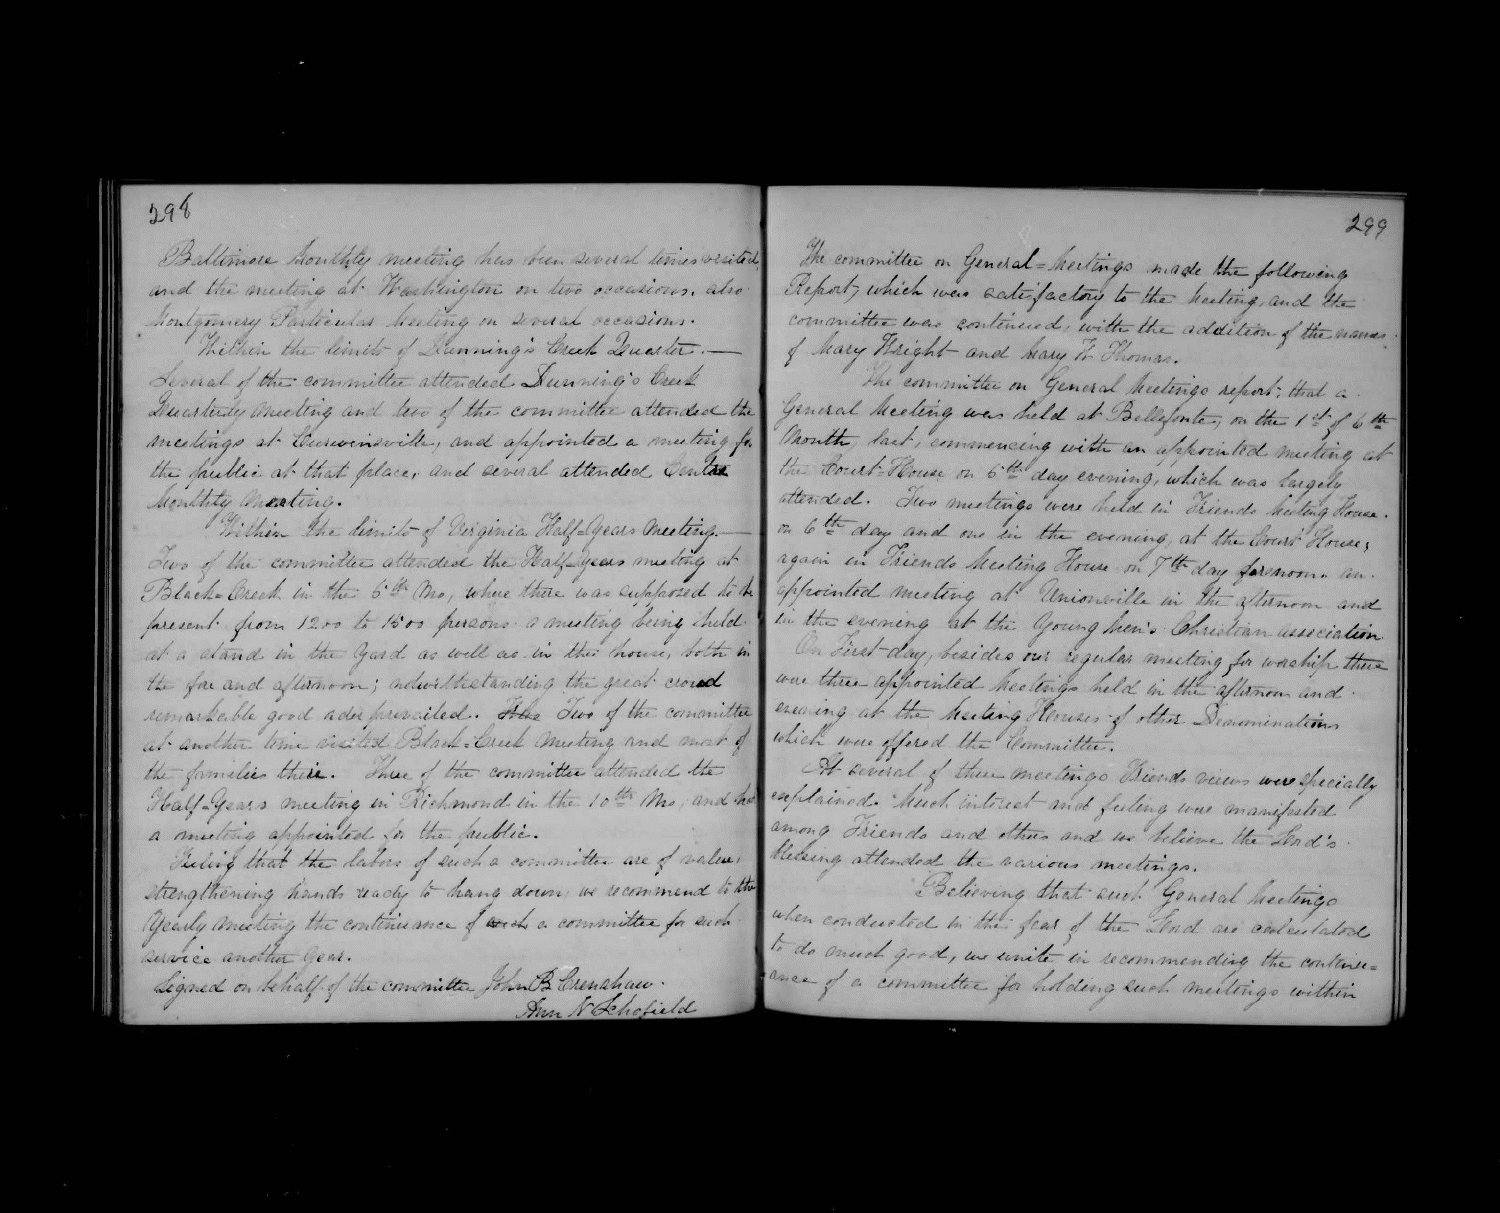 298
Baltimore Monthly meeting has been several times visited,
and the meeting at Washington on two occasions. also
Montgomery Particular Meeting on several occasions.
Within the limits of Dunning's Creek Quarter. —
Several of the committee attended Dunning's Creek
Quarterly Meeting and two of the committee attended the
meetings at Curwinsville, and appointed a meeting for
the public at that place, and several attended Centre
Monthly Meeting.
Within the limits of Virginia Half-Years Meeting. —
Two of the committee attended the Half-Years meeting at
Black Creek in the 5th Mo, where there was supposed to be
present from 1200 to 1500 persons a meeting being held
at a stand in the yard as well as in the house, both in
the fore and afternoon; notwithstanding the great crowd
remarkable good order prevailed. Two of the committee
at another time visited Black-Creek Meeting and most of
the families there. Three of the committee attended the
Half-Years meeting in Richmond in the 10th Mo, and had
a meeting appointed for the public.
Feeling that the labors of such a committee are of value,
strengthening hands ready to hang down, we recommend to the
Yearly Meeting the continuance of such a committee for such
service another year.
Signed on behalf of the committee John B. Crenshaw.
Ann N Schofield
299
The committee on General-Meetings made the following
Report, which was satisfactory to the Meeting, and the
committee was continued, with the addition of the names
of Mary Wright and Mary Thomas.
The committee on General Meetings report; that a
General Meeting was held at Bellefonte, on the 1st of 6th
Month, last, commencing with an appointed meeting at
the Court-House on 5th day evening, which was largely
attended. Two meetings were held in Friends Meeting House.
on 6th day and one in the evening, at the Court House;
again in Friends Meeting House on 7th day forenoon. an
appointed meeting at Unionville in the afternoon and
in the evening at the Young Men's Christian Association
On First-day, besides our regular meeting for worship there
were three appointed Meetings held in the afternoon and
evening at the Meeting Houses of other Denominations
which were offered the Committee.
At several of these meetings Friends views were specially
explained. Much interest and feeling were manifested
among Friends and others and we believe the Lord's
blessing attended the various meetings.
Believing that such General Meetings
when conducted in the fear of the Lord are calculated
to do much good, we unite in recommending the continu=
ance of a committee for holding such meetings within